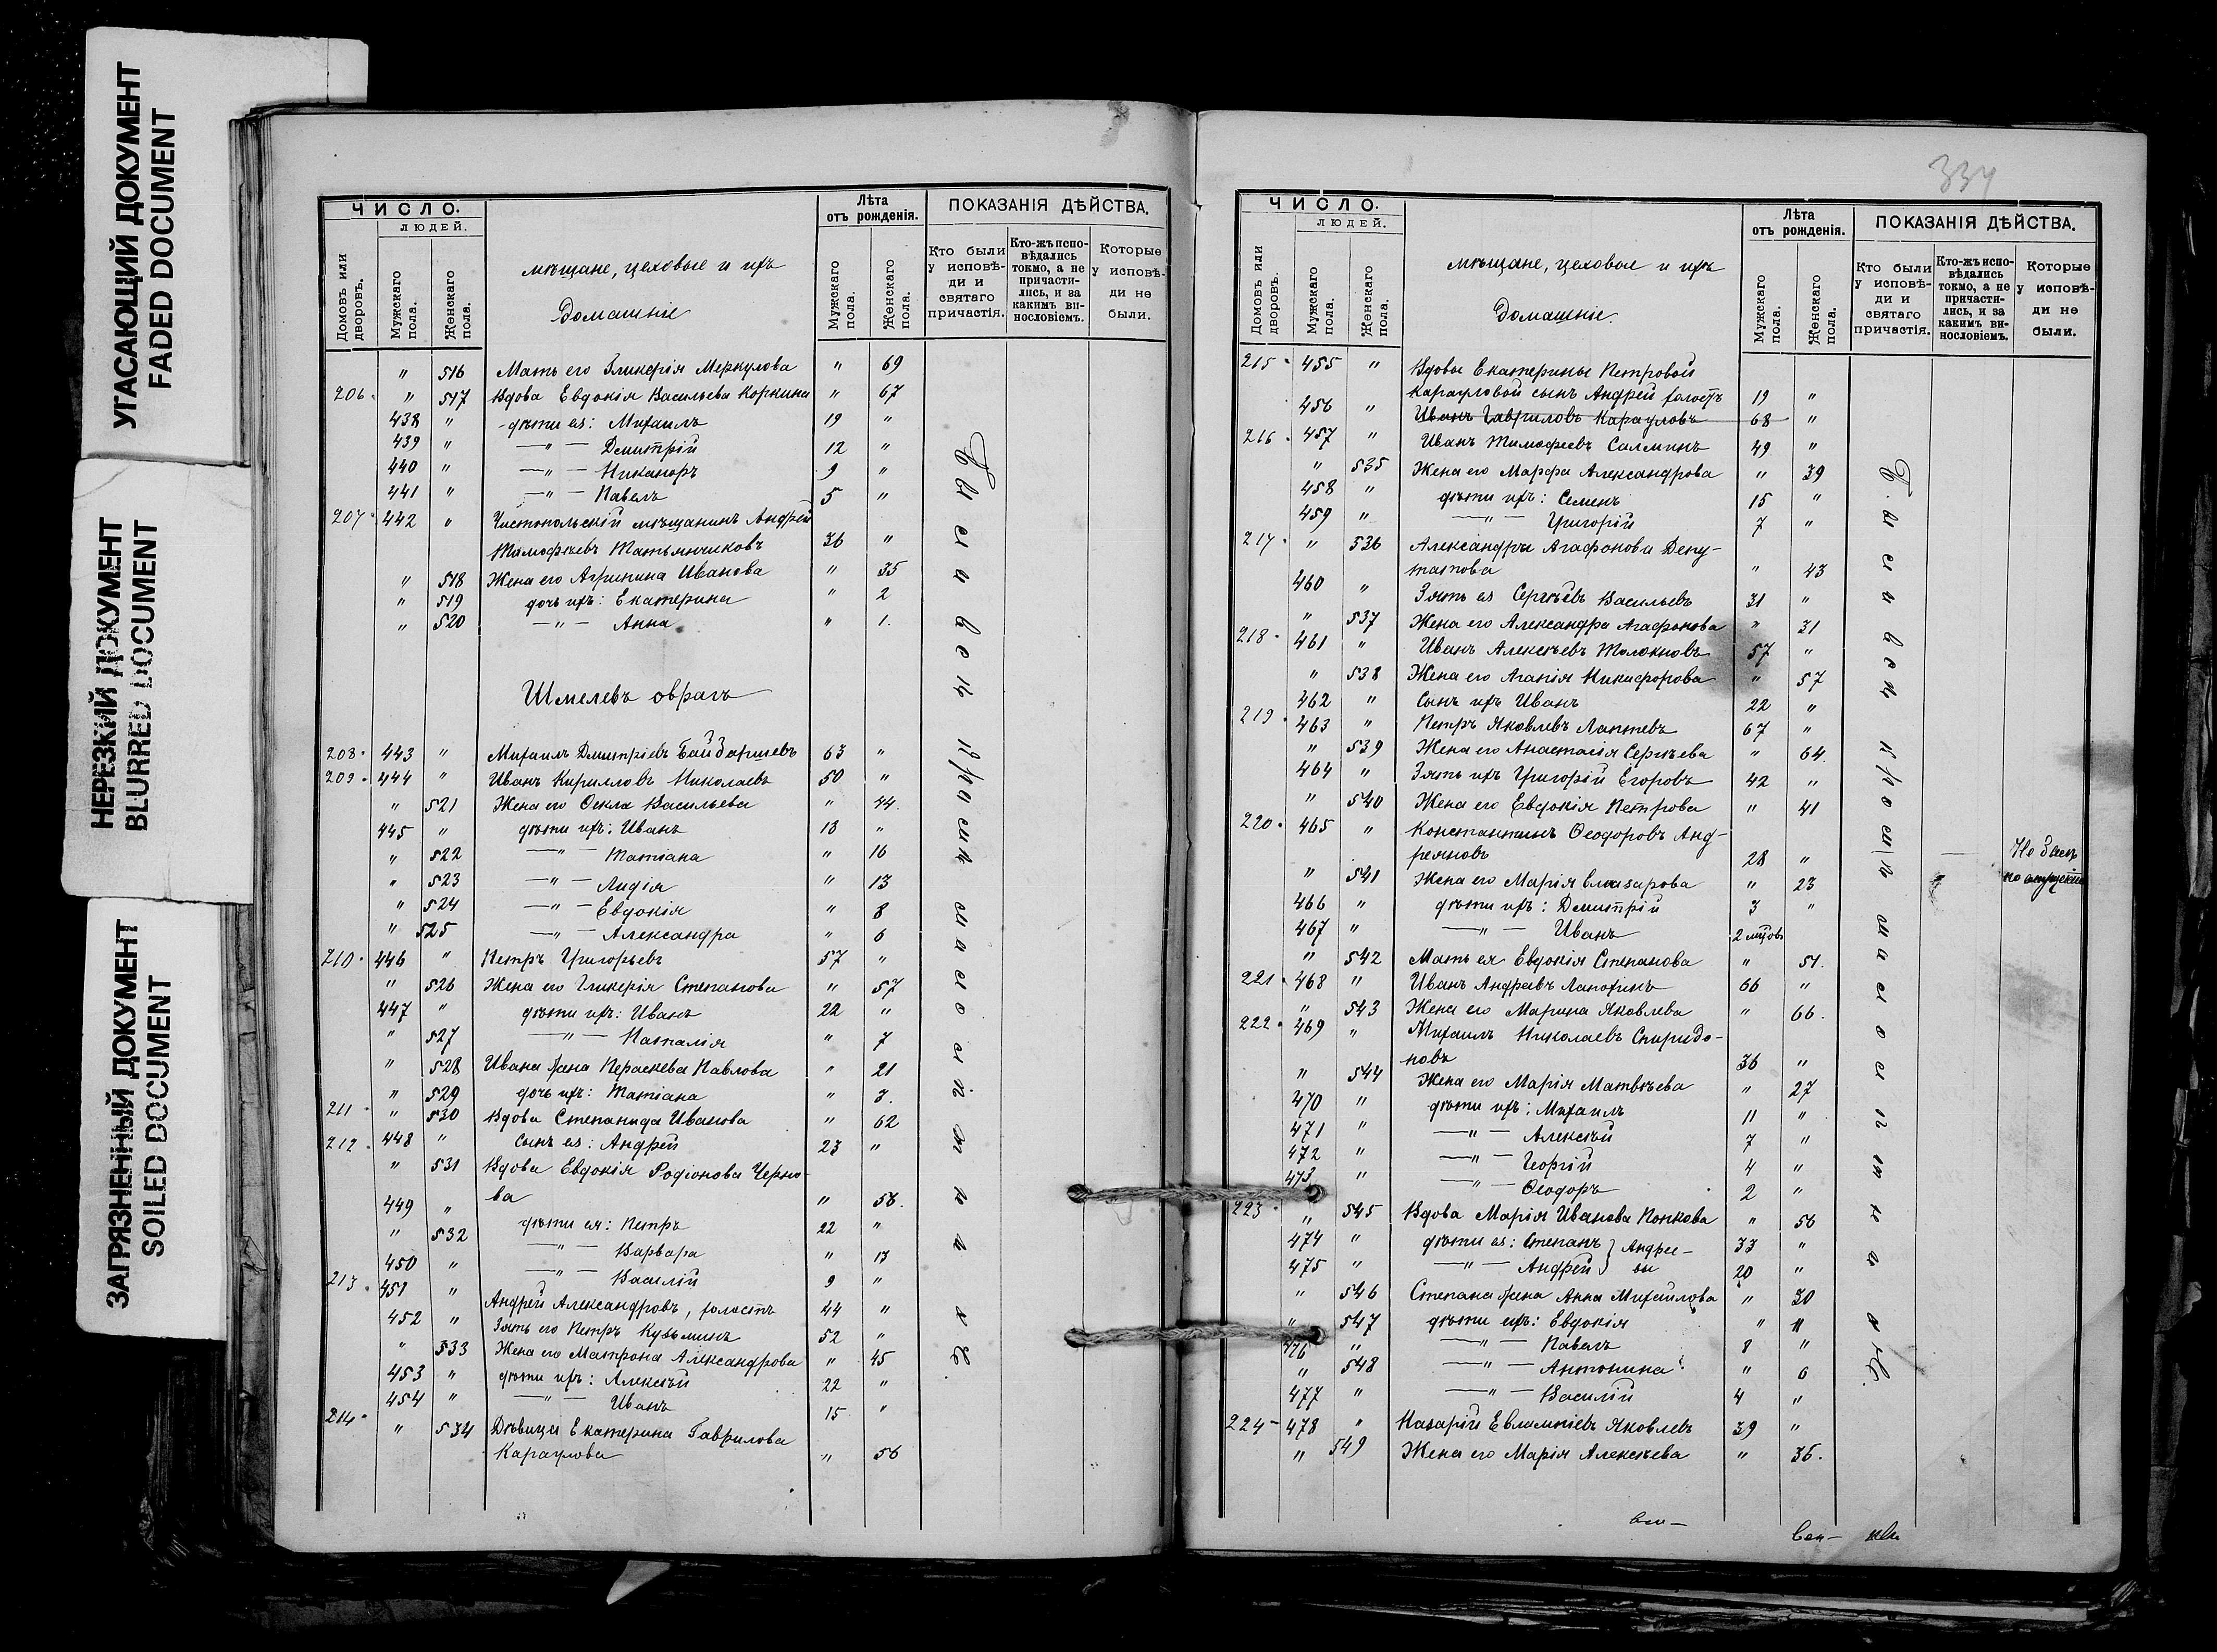 УГАСАЮЩИЙ ДОКУМЕНТ
FADED DOCUMENT
НЕРЕЗКИЙ ДОКУМЕНТ
BLURRED DOCUMENT
ЗАГРЯЗНЕННЫЙ ДОКУМЕНТ
SOILED DOCUMENT
ЧИСЛО.
ЛЮДЕЙ.
Домовъ или дворовъ.
Мужскаго пола.
Женскаго пола.
мѣщане, цеховые и ихъ
Домашніе
Лѣта отъ рожденія.
Мужскаго пола.
Женскаго пола.
ПОКАЗАНІЯ ДѢЙСТВА.
Кто были у исповѣди и святаго причастія.
Кто-жъ исповѣдались токмо, а не причастились, и за какимъ винословіемъ.
Которые у исповѣди не были.
" 516 Мать его Гликерія Меркулова " 69
206. " 517 Вдова Евдокія Васильева Коркина " 67
438 " дѣти ея: Михаилъ 19 "
439 " —"— Димитрій 12 "
440 " —"— Никаноръ 9 "
441 " —"— Павелъ 5 "
207. 442 " Чистопольскій мѣщанинъ Андрей
Тимофѣевъ Татьянчиковъ 36 "
" 518 Жена его Агрипина Иванова " 35
" 519 дочь ихъ: Екатерина " 2
" 520 —"— Анна " 1.
Шмелевъ оврагъ
208. 443 " Михаилъ Дмитріевъ 63 "
209. 444 " Иванъ Кирилловъ Николаевъ 50 "
" 521 Жена его Ѳекла Васильева " 44.
445 " дѣти ихъ: Иванъ 18 "
" 522 —"— Татіана " 16
" 523 —"— Лидія " 13
" 524 —"— Евдокія " 8
" 525 —"— Александра " 6
210. 446 " Петръ Григорьевъ 57 "
" 526 Жена его Гликерія Степанова " 57
447 " дѣти ихъ: Иванъ 22 "
" 527 —"— Наталія " 7
" 528 Ивана жена Пераскева Павлова " 21
" 529 дочь ихъ: Татіана " 3.
211. " 530 Вдова Степанида Иванова " 62
212. 448 " сынъ ея: Андрей 23 "
" 531 Вдова Евдокія Родіонова Черно-
ва " 58.
449 " дѣти ея: Петръ 22 "
" 532 —"— Варвара " 13
450 " —"— Василій 9 "
213. 451 " Андрей Александровъ, холостъ 44 "
452 " Зять его Петръ Кузьминъ 52 "
" 533 Жена его Матрона Александрова " 45
453 " дѣти ихъ: Алексѣй 22 "
454 " —"— Иванъ 15 "
214. " 534 Дѣвица Екатерина Гаврилова
Караулова " 56
334
ЧИСЛО.
ЛЮДЕЙ.
Домовъ или дворовъ.
Мужскаго пола.
Женскаго пола.
мѣщане, цеховые и ихъ
Домашніе.
Лѣта отъ рожденія.
Мужскаго пола.
Женскаго пола.
ПОКАЗАНІЯ ДѢЙСТВА.
Кто были у исповѣди и святаго причастія.
Кто-жъ исповѣдались токмо, а не причастились, и за какимъ винословіемъ.
Которые у исповѣди не были.
215. 455 " Вдовы Екатерины Петровой
Карауловой сынъ Андрей холостъ 19 "
456 " Иванъ Гавриловъ Карауловъ 68 "
216. 457 " Иванъ Тимофеевъ Салминъ 49 "
" 535 Жена его Марфа Александрова " 39
458 " дѣти ихъ: Семенъ 15 "
459 " —"— Григорій 7 "
217. " 536 Александра Агафонова Депу-
татова " 43
460 " Зять ея Сергѣевъ Васильевъ 31 "
" 537 Жена его Александра Агафонова " 31
218. 461 " Иванъ Алексѣевъ Толокновъ 57 "
" 538 Жена его Агапія Никифорова " 57
462 " Сынъ ихъ Иванъ 22 "
219. 463 " Петръ Яковлевъ Лаптевъ 67 "
" 539 Жена его Анастасія Сергѣева " 64.
464 " Зять ихъ Григорій Егоровъ 42 "
" 540 Жена его Евдокія Петрова " 41
220. 465 " Константинъ Ѳеодоровъ Анд-
реяновъ 28 " Не былъ
" 541 Жена его Марія Елизарова " 23 по опущенію
466 " дѣти ихъ: Димитрій 3 "
467 " —"— Иванъ 2 "
" 542 Мать ея Евдокія Степанова " 51.
221. 468 " Иванъ Андреевъ 66 "
" 543 Жена его Марина Яковлева " 66.
222. 469 " Михаилъ Николаевъ Спиридо-
новъ 36 "
" 544 Жена его Марія Матвѣева " 27
470 " дѣти ихъ: Михаилъ 11 "
471 " —"— Алексѣй 7 "
472 " —"— Георгій 4 "
473 " —"— Ѳеодоръ 2 "
223. " 545 Вдова Марія Иванова Попкова " 56
474 " дѣти ея: Степанъ } Андрее- 33 "
475 " —"— Андрей } вы 20 "
" 546 Степана жена Анна Михайлова " 30
" 547 дѣти ихъ: Евдокія " 11
476 " —"— Павелъ 8 "
" 548 —"— Антонина " 6
477 " —"— Василій 4 "
224 – 478 " Назарій Евлампіевъ Яковлевъ 39 "
" 549 Жена его Марія Алексѣева " 36.